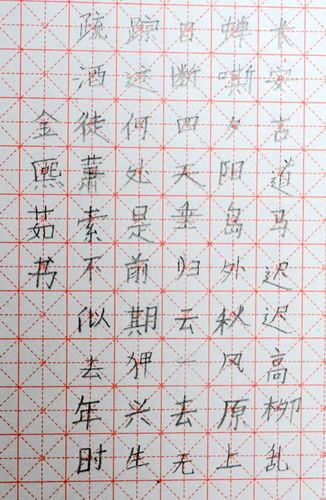 长安古道马迟迟高柳乱
蝉嘶夕阳岛外秋风原上
目断四天垂归云一去无
踪迹何处是前期狎兴生
疏酒徒蕭索不似去年时
金熙茹书